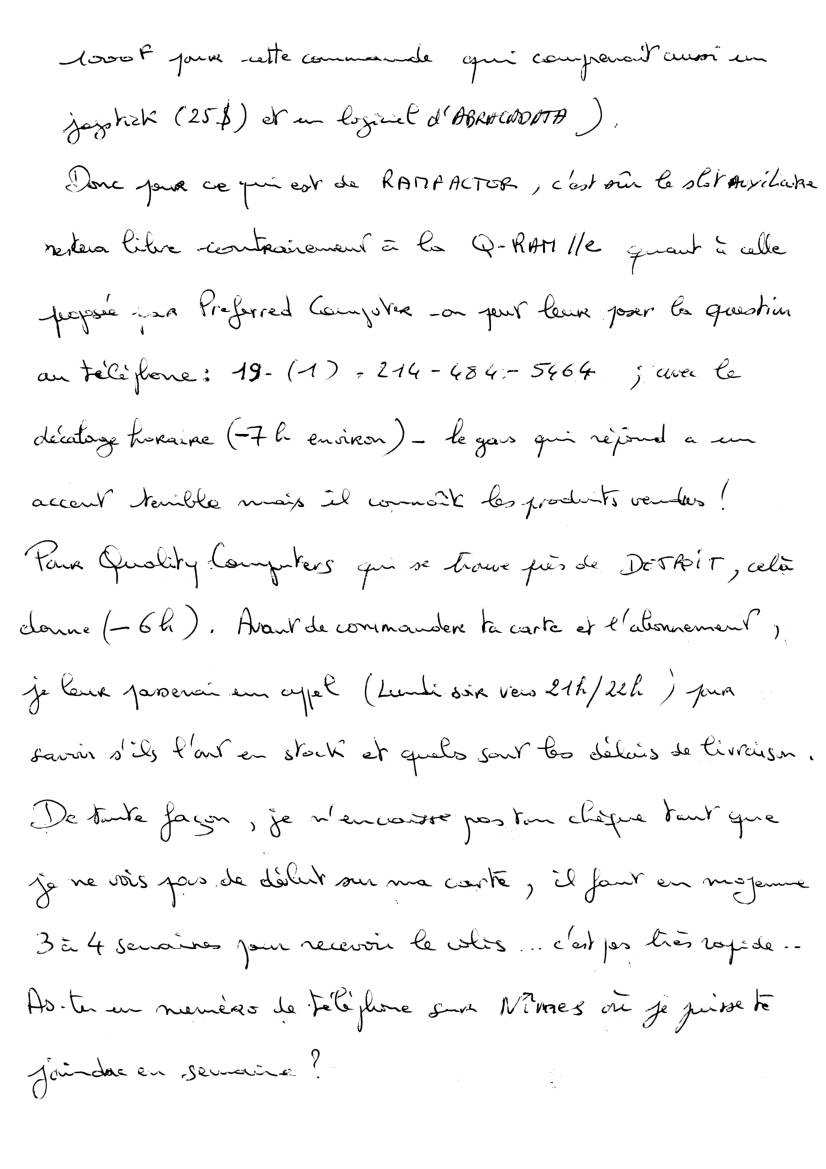 1000F pour cette commande qui comprenait aussi un
joystick (25$) et un logiciel d'ABRACADATA ).
Donc pour ce qui est de RAMFACTOR, c'est sûr le slot Auxiliaire
restera libre contrairement à la Q-RAM //e quant à celle
proposée par Preferred Computer - on peut leur poser la question
au téléphone : 19-(1)-214-484-5464 ; avec le
décalage horaire (-7h environ) - le gars qui répond a un
accent terrible mais il connaît les produits vendus !
Pour Quality Computers qui se trouve près de DETROIT, celà
donne (-6h). Avant de commander ta carte et l'abonnement,
je leur passerai un appel (Lundi soir vers 21h/22h) pour
savoir s'ils l'ont en stock et quels sont les délais de livraison.
De toute façon, je n'encaisse pas ton chèque tant que
je ne vois pas de débit sur ma carte, il faut en moyenne
3 à 4 semaines pour recevoir le colis ... c'est pas très rapide..
As-tu un numéro de téléphone sur Nîmes où je puisse te
joindre en semaine ?